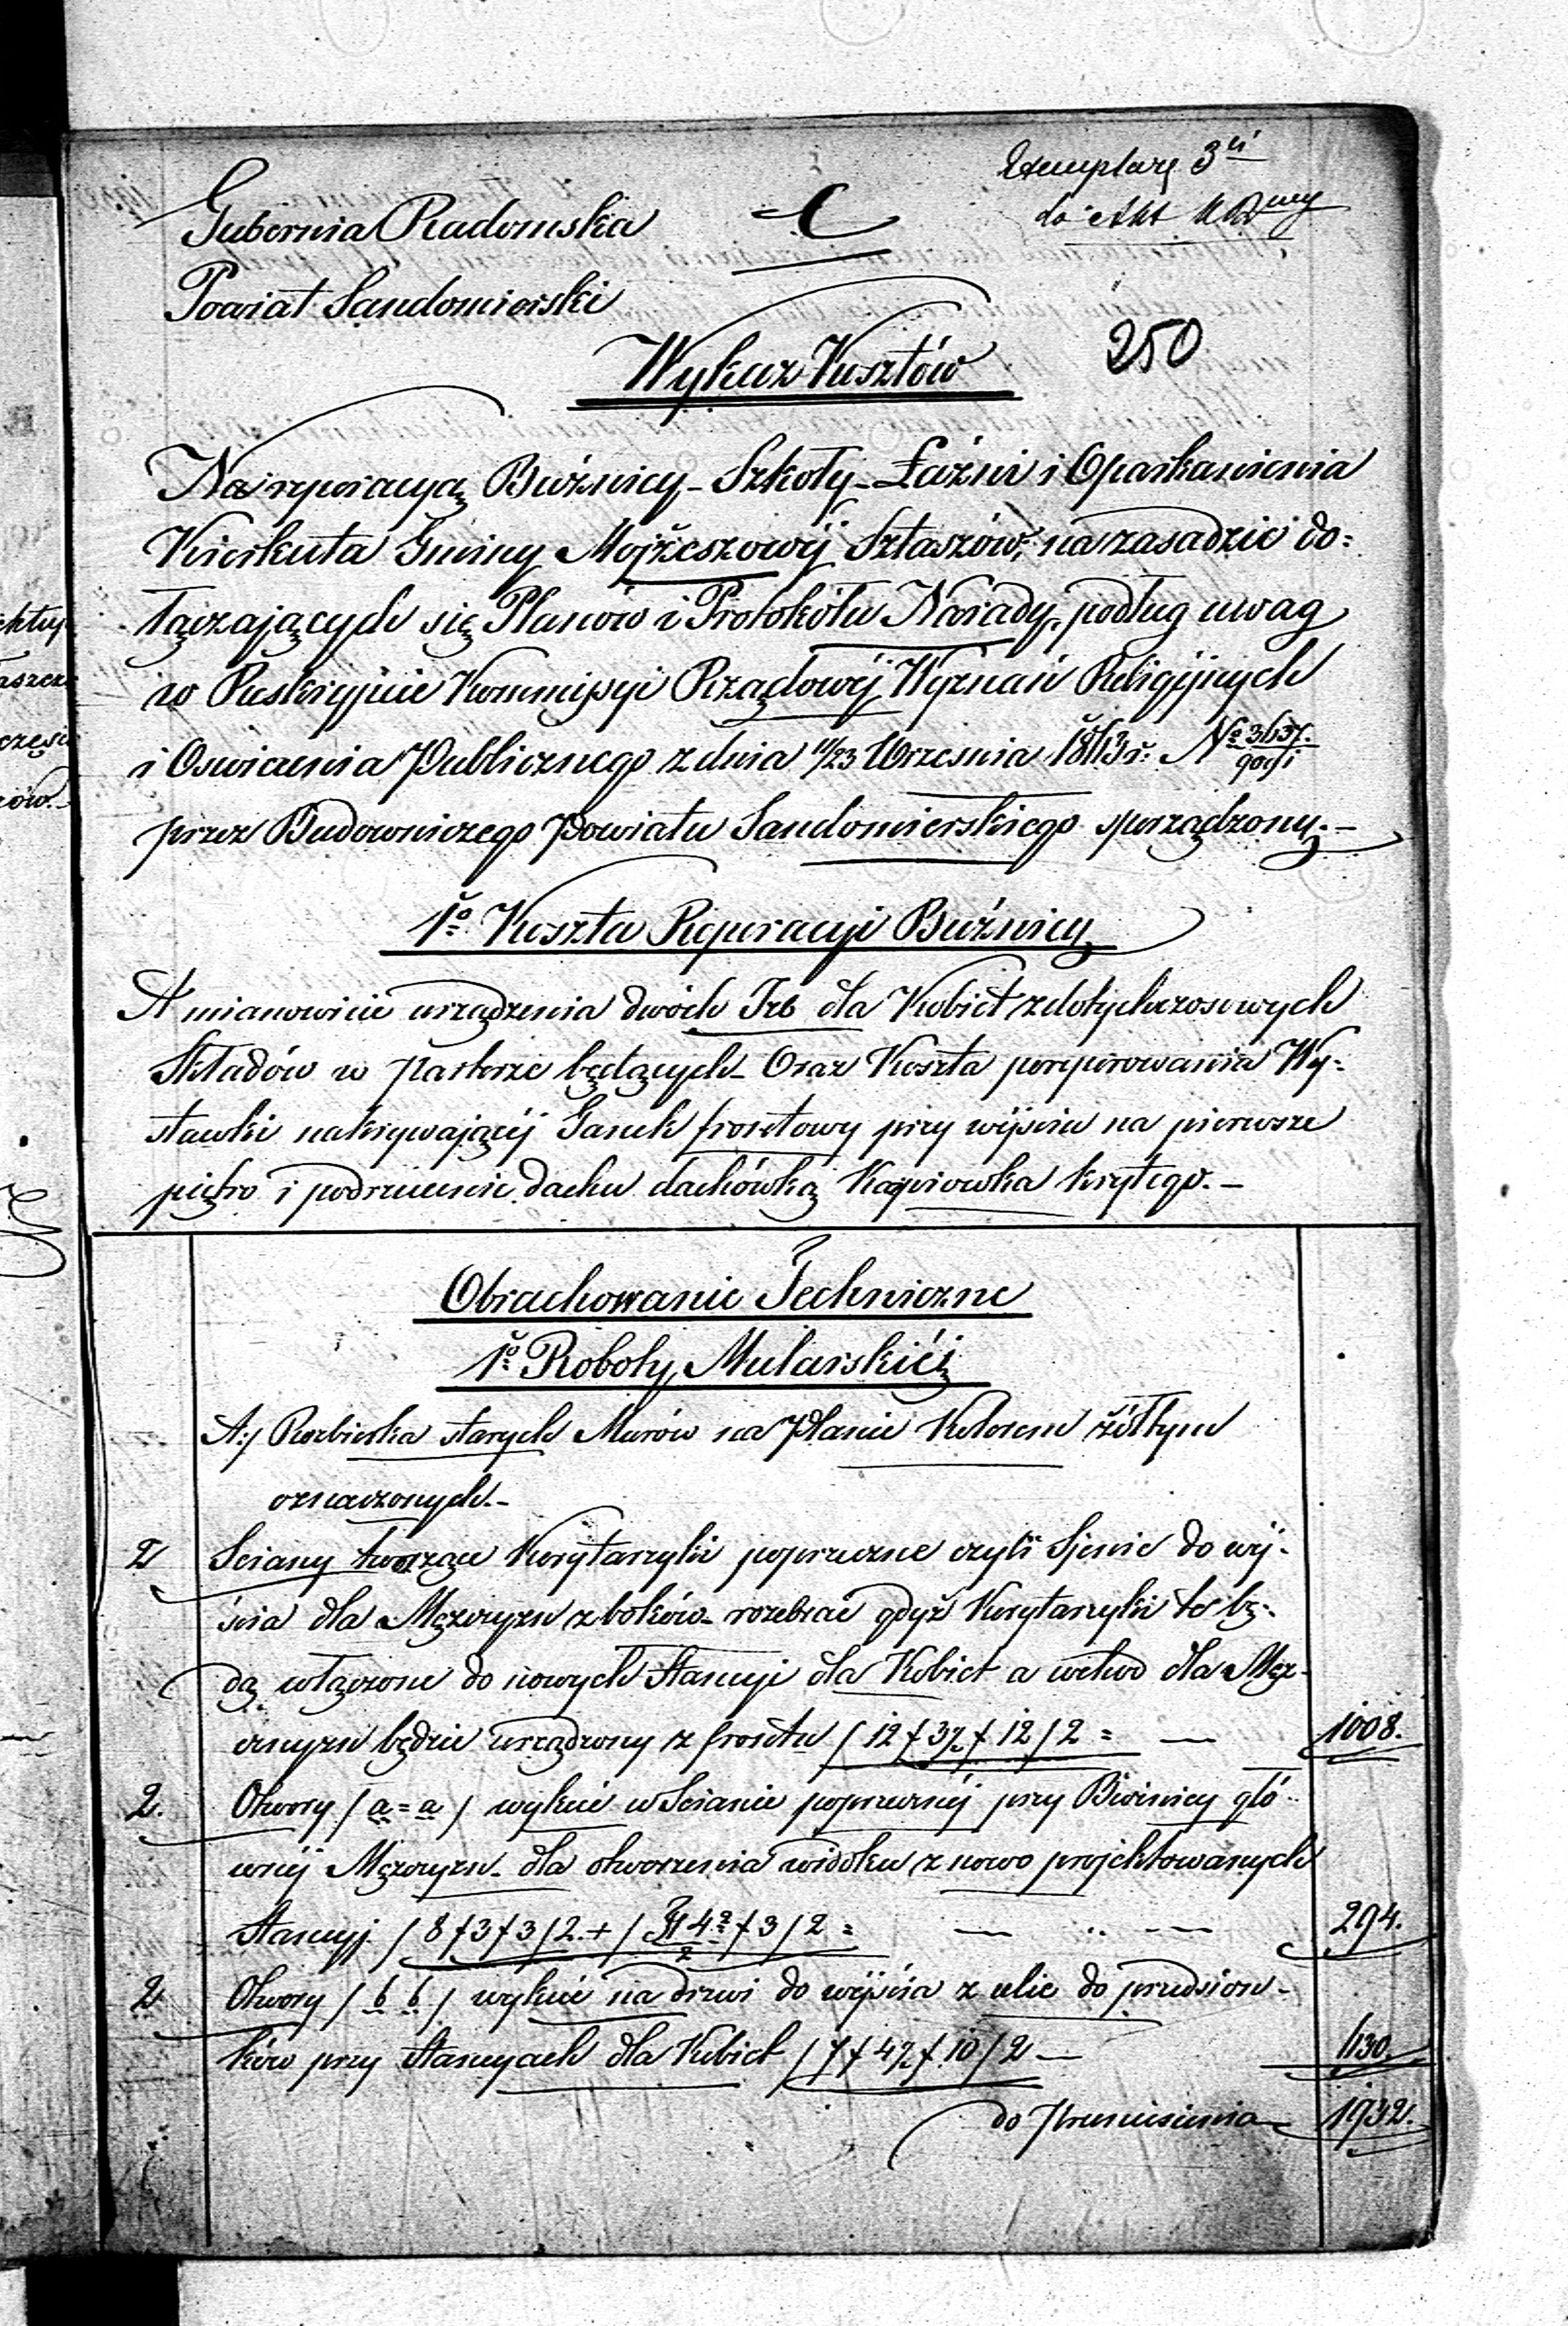 Exemplarz 3ci
do Akt K Rwey
Gubernia Radomska
C
Powiat Sandomierski
Wykaz Kosztów
250
Na reperacyą Bóżnicy - Szkoły - Łaźni i Oparkanienia
Kierkuta Gminy Mojżeszowéj Sztaszów, na zasadzie do=
łączających się Planów i Protokółu Narady, podług uwag
w Reskrypcie Kommissyi Rządowéj Wyznań Religijnych
i Oswiecenia Publicznego z dnia 11/23 Wrzesnia 1843 r: No
przez Budowniczego Powiatu Sandomierskiego sporządzony.-
1o Koszta Reperacyi Bóżnicy
A mianowicie urządzenia dwóch Izb dla Kobiet z dotychczasowych
Składów w parterze będących - Oraz Koszta poreperowania Wy=
stawki nakrywającéj Ganek frontowy przy wyjściu na pierwsze
piętro i podrzucenie dachu dachówką Karpiowka krytego.-
Obrachowanie Techniczne
1o Roboty Mularskiéj
A:/ Rozbiórka starych Murów na Planie Kolorem żółtym
oznaczonych.-
2 Sciany tworzące Korytarzyki poprzeczne czyli Sienie do wéj=
ścia dla Mężczyzn z boków - rozebrać gdyż Korytarzyki te bę=
dą włączone do nowych Stancyi dla Kobiet a wchod dla Męż=
czyzn będzie urządzony z frontu / 12 f 3½ f 12 / 2 = — 1008.
2. Otwory / a = a / wykuć w Scianie poprzecznéj przy Bóżnicy głó=
wnéj Mężczyzn - dla otworzenia widoku z nowo projektowanych
Stancyj / 8 f 3 f 3 / 2 + / f 3 / 2 = — 294.
2 Otwory / b b / wykuć na drzwi do wéjścia z ulic do przedsion=
ków przy Stancyach dla Kobiet / 7 f 4½ f 10 / 2 — 630.
do Przeniesienia 1932.